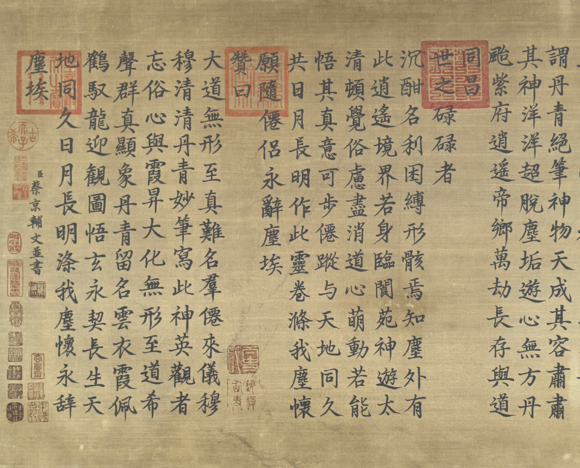 謂丹青絕筆神物天成其容肅肅
其神洋洋超脫塵垢遊心無方丹
颱紫府逍遙帝鄉萬劫長存與道
同昌
世之碌碌者
沉酣名利困縛形骸焉知塵外有
此逍遙境界若身臨閬苑神遊太
清頓覺俗慮盡消道心萌動若能
悟其真意可步僊蹤与天地同久
共日月長明作此靈卷滌我塵懷
願隨僊侶永辭塵埃
贊曰
大道無形至真難名羣僊來儀穆
穆清清丹青妙筆寫此神英觀者
忘俗心與霞昇大化無形至道希
聲群真顯象丹青留名雲衣霞佩
鶴馭龍迎觀圖悟玄永契長生天
地同久日月長明滌我塵懷永辞
塵埃
臣蔡京輔文並書